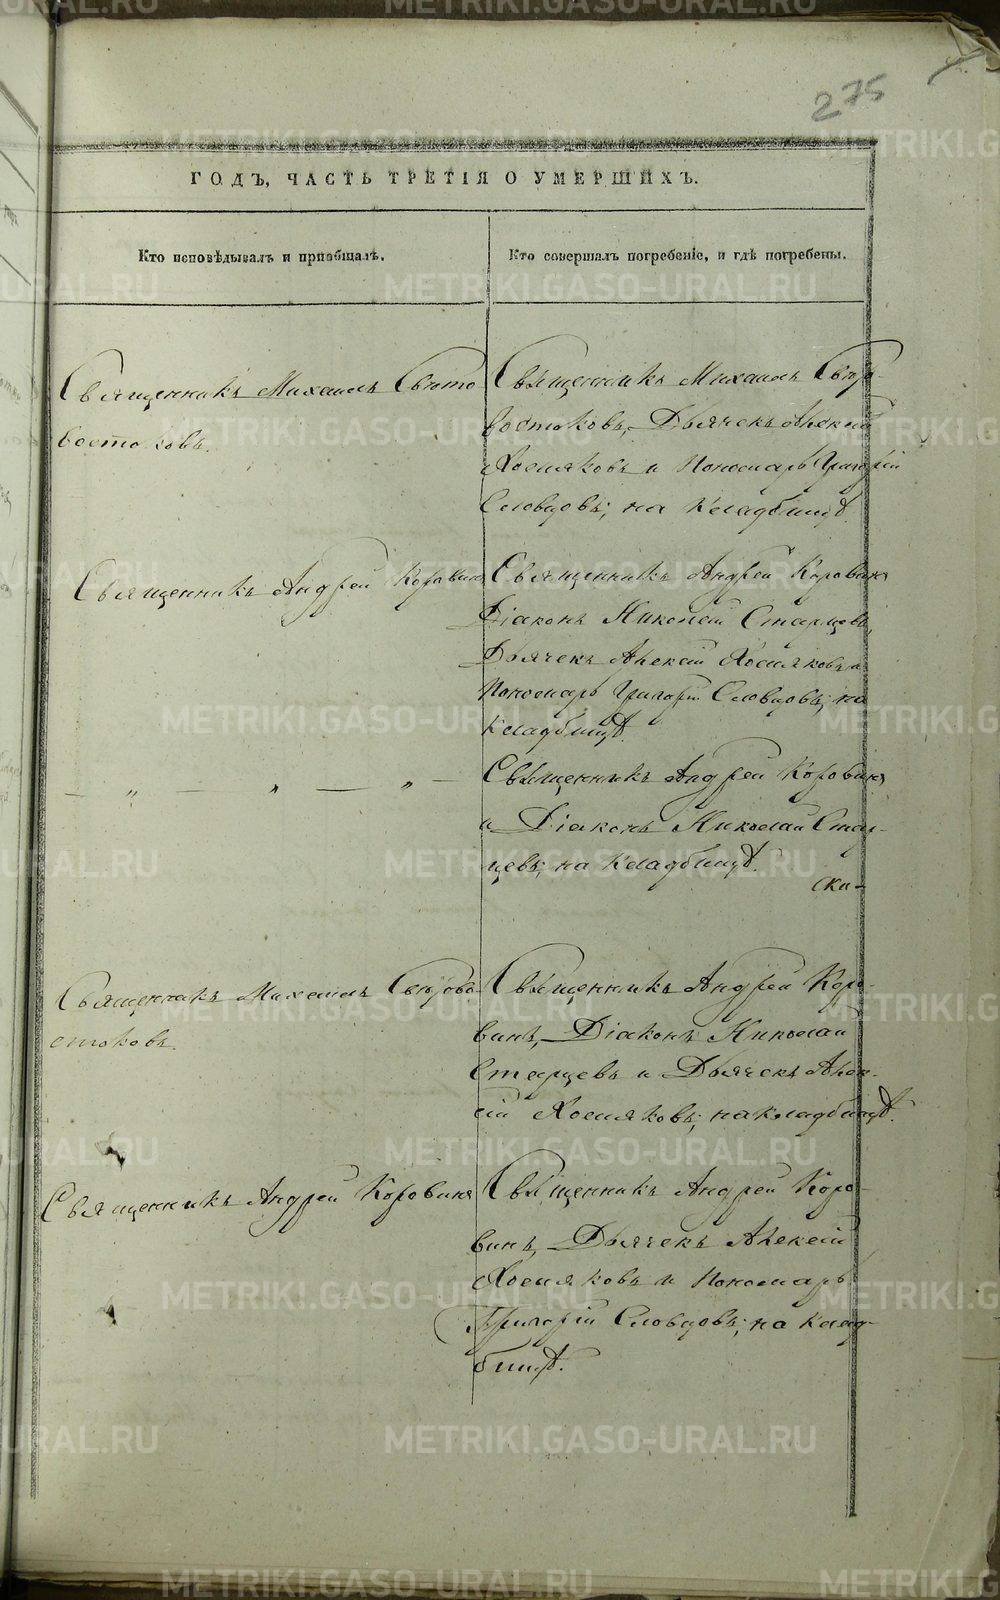 275
ГОДЪ, ЧАСТЬ ТРЕТІЯ О УМЕРШИХЪ.
Кто исповѣдывалъ и пріобщалъ.
Кто совершалъ погребеніе, и гдѣ погребены.
Священникъ Михаилъ Свѣто
востоковъ.
Священникъ Михаилъ Свѣто-
востоковъ, Дьячекъ Алексѣй
Хосяковъ и Пономарь Григорій
Словцовъ; на кладбищѣ.
Священникъ Андрей Коровинъ
Священникъ Андрей Коровинъ
Діаконъ Николай Старцевъ,
Дьячекъ Алексѣй Хосяковъ и
Пономарь Григорій Словцовъ; на
кладбищѣ.
— „ — „ — „ —
Священникъ Андрей Коровинъ
и Діаконъ Николай Стар-
цевъ; на кладбищѣ.
Священникъ Михаилъ Свѣтово-
стоковъ.
Священникъ Андрей Коро-
винъ, Діаконъ Николай
Старцевъ и Дьячекъ Алек-
сѣй Хосяковъ; на кладбищѣ.
Священникъ Андрей Коровинъ
Священникъ Андрей Коро-
винъ, Дьячекъ Алексѣй
Хосяковъ и Пономарь
Григорій Словцовъ; на клад-
бищѣ.
METRIKI.GASO-URAL.RU